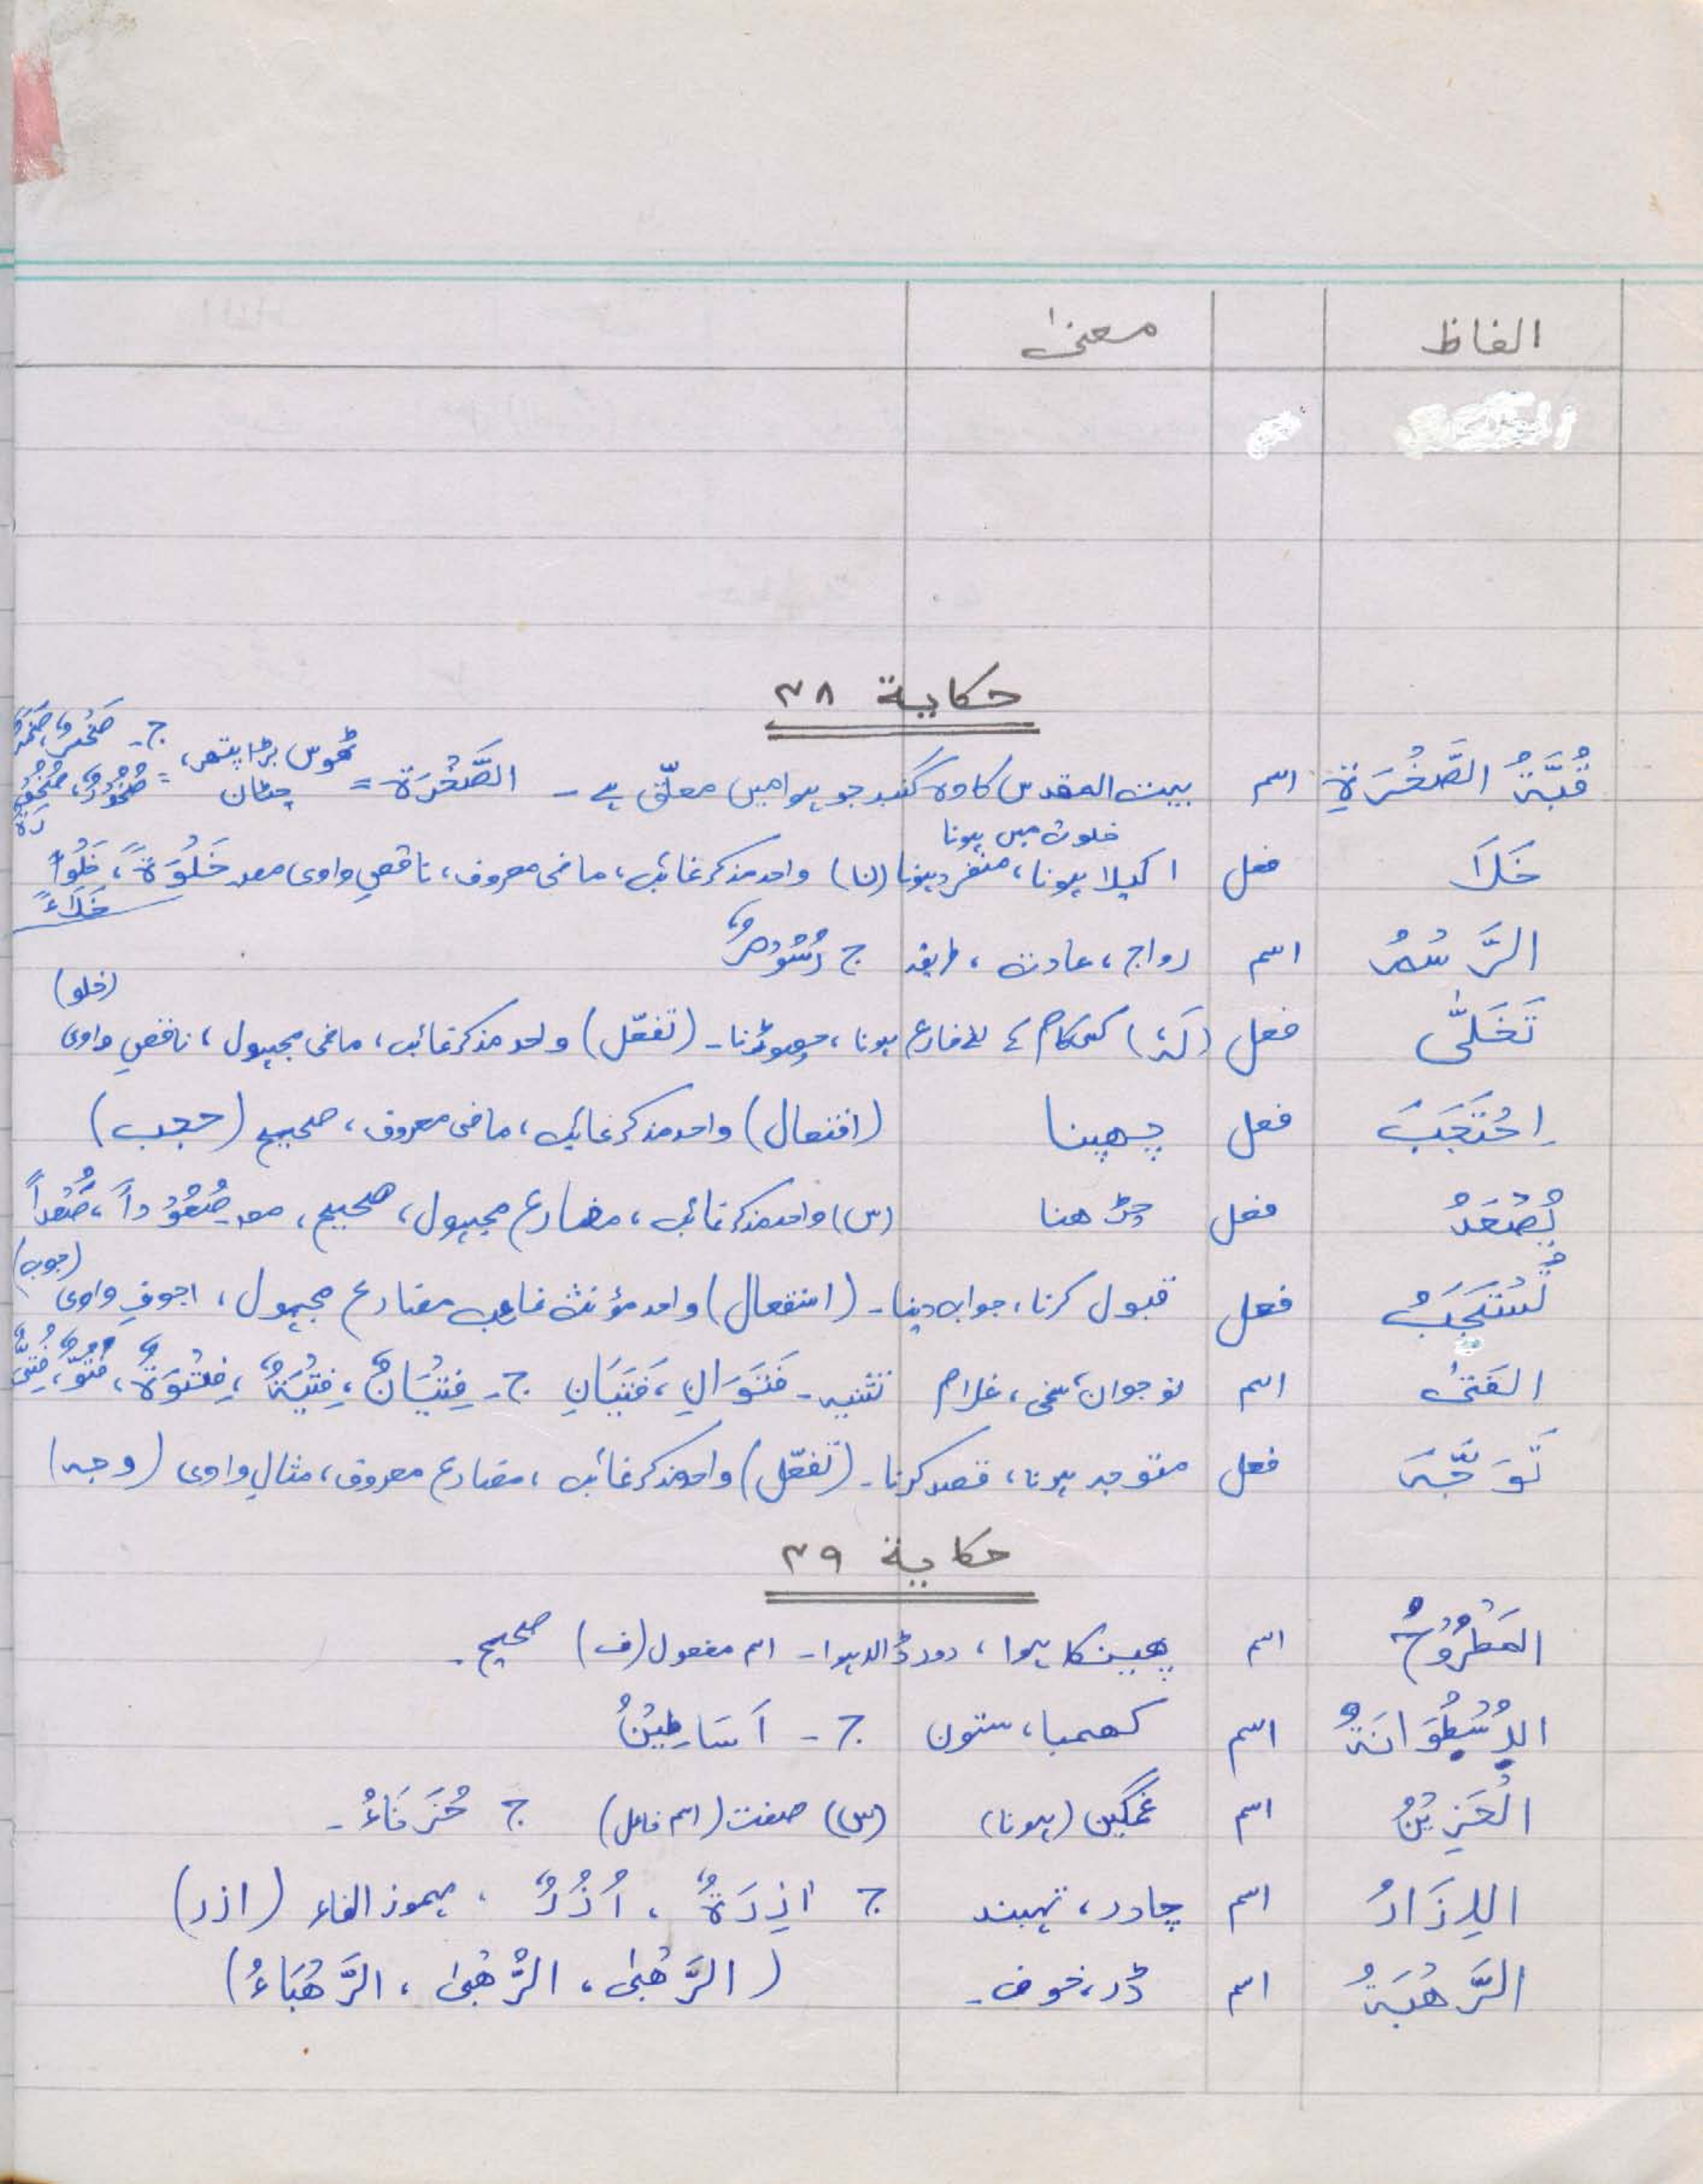 الفاظ معنیٰ
حکایة ۳۸
قُبَّةُ الصَّخْرَةِ اسم بیت المقدس کا وہ گنبد جو ہوا میں معلّق ہے ۔ الصَّخْرَة = ٹھوس بڑا پتھر، چٹان = ج۔ صَخْرٌ، صُخُوْرٌ،
خلوت میں ہونا
خَلَا فعل اکیلا ہونا، منفرد ہونا (ن) واحد مذکر غائب، ماضی معروف، ناقص واوی مصد خَلْوَةً، خُلُوّاً خَلَاءً
الرَّسْمُ اسم رواج، عادت، طریقہ ج رُسُوْمٌ
(خلو)
تَخَلّٰی فعل (لَہٗ) کسی کام کے لئے فارغ ہونا، چھوڑنا۔ (تفعّل) واحد مذکر غائب، ماضی مجہول، ناقص واوی
اِحْتَجَبَ فعل چھپنا (افتعال) واحد مذکر غائب، ماضی معروف، صحیح (حجب)
یُصْعَدُ فعل چڑھنا (س) واحد مذکر غائب، مضارع مجہول، صحیح، مصد صُعُوْداً، صُعُداً
(جوب)
تُسْتَجَبُ فعل قبول کرنا، جواب دینا۔ (استفعال) واحد مؤنث غائب مضارع مجہول، اجوف واوی
الفَتیٰ اسم نوجوان، سخی، غلام تثنیہ۔ فَتَوَانِ، فَتَیَانِ ج۔ فِتْیَانٌ، فِتْیَةٌ، فِتْوَةٌ، فُتُوٌّ، فُتِیٌّ
تَوَجَّہَ فعل متوجہ ہونا، قصد کرنا۔ (تفعّل) واحد مذکر غائب، مضارع معروف، مثال واوی (وجہ)
حکایة ۳۹
المَطْرُوْحُ اسم پھینکا ہوا، دور ڈالا ہوا۔ اسم مفعول (ف) صحیح۔
الاُسْطُوَانَةُ اسم کھمبا، ستون ج ۔ اَسَاطِیْنُ
الحَزِیْنُ اسم غمگین (ہونا) (س) صفت (اسم فاعل) ج حُزَنَاءُ۔
الاِزَارُ اسم چادر، تہبند ج اٰزِرَةٌ، اُزُرٌ، مہموز الفاء (ازر)
الرَّھْبَةُ اسم ڈر، خوف۔ (الرَّھْبیٰ، الرُّھْبیٰ، الرَّھْبَاءُ)